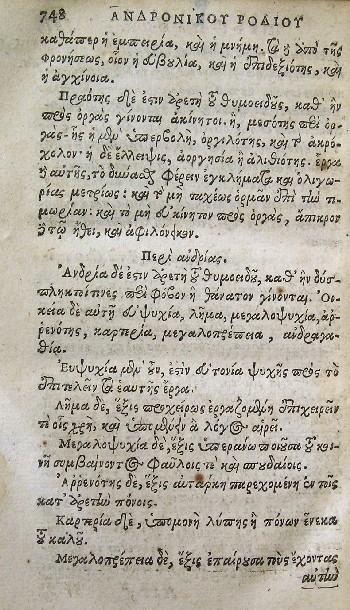 748 ΑΝΔΡΟΝΙΚΟΥ ΡΟΔΙΟΥ
καθάπερ ἡ ἐμπειρία, καὶ ἡ μνήμη. τὰ δ' ὑπὸ τῆς
φρονήσεως, οἷον ἡ εὐβουλία, καὶ ἡ ἐπιδεξιότης, καὶ
ἡ ἀγχίνοια.
Πραότης δέ ἐστιν ἀρετὴ τοῦ θυμοειδοῦς, καθ' ἣν
πρὸς ὀργὰς γίνονται ἀκίνητοι. ἢ, μεσότης περὶ ὀρ-
γάς· ἧς ἡ μὲν ὑπερβολὴ, ὀργιλότης, καὶ τὸ ἀκρό-
χολον· ἡ δὲ ἔλλειψις, ἀοργησία ἢ ἠλιθιότης. ἔργα
δ' αὐτῆς, τὸ δύνασθαι φέρειν ἐγκλήματα καὶ ὀλιγω-
ρίας μετρίως: καὶ τὸ μὴ ταχέως ὁρμᾶν ἐπὶ τὴν τι-
μωρίαν: καὶ τὸ μὴ εὐκίνητον πρὸς ὀργὰς, ἄπικρον
δ' τῷ ἤθει, καὶ ἀφιλόνεικον.
Περὶ ἀνδρίας.
Ἀνδρία δέ ἐστιν ἀρετὴ τοῦ θυμοειδοῦς, καθ' ἣν δύσ-
πληκτοι τινες περὶ φόβον ἢ θάνατον γίνονται. Οἰ-
κεῖα δὲ αὐτῇ εὐψυχία, λῆμα, μεγαλοψυχία, ἀῤ-
ρενότης, καρτερία, μεγαλοπρέπεια, ἀνδραγα-
θία.
Εὐψυχία μὲν οὖν, ἐστὶν εὐτονία ψυχῆς πρὸς τὸ
ἐπιτελεῖν τὰ ἑαυτῆς ἔργα.
Λῆμα δὲ, ἕξις προχείρως ἐργαζομένη ἐπιχειρεῖν
τε οἷς χρὴ, καὶ ὑπομένειν ἃ λόγος αἱρεῖ.
Μεγαλοψυχία δὲ, ἕξις ὑπεράνω ποιοῦσα τοῦ κοι-
νῇ συμβαίνοντος φαύλοις τε καὶ σπουδαίοις.
Ἀῤῥενότης δὲ, ἕξις αὐτάρκη παρεχομένη ἐν τοῖς
κατ' ἀρετὴν πόνοις.
Καρτερία δὲ, ὑπομονὴ λύπης ἢ πόνων ἕνεκα
τοῦ καλοῦ.
Μεγαλοπρέπεια δὲ, ἕξις ἐπαίρουσα τοὺς ἔχοντας
αὐτὴν